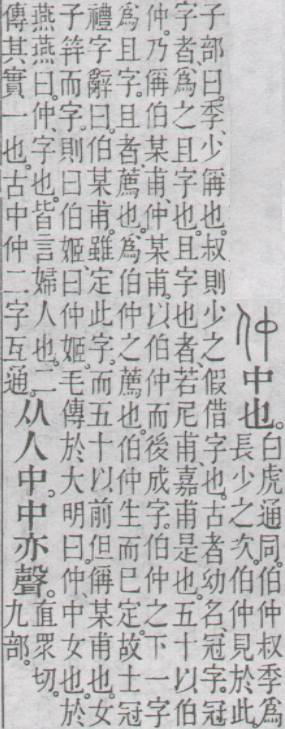 仲中也。
白虎通同。伯仲叔季爲
長少之次。伯仲見於此。
子部曰。季、少偁也。叔則少之假借字也。古者幼名、冠字。冠
字者、爲之且字也。且字也者、若尼甫、嘉甫是也。五十以伯
仲。乃偁伯某甫、仲某甫。以伯仲而後成字。伯仲之下一字
爲且字。且者、薦也。爲伯仲之薦也。伯仲生而巳定。故士冠
禮字辭曰。伯某甫。雖定此字。而五十以前但偁某甫也。女
子筓而字。則曰伯姬、曰仲姬。毛傳於大明曰。仲、中女也。於
燕燕曰。仲、字也。皆言婦人也。二
傳其實一也。古中仲二字互通。
从人中。中亦聲。
直眾切。
九部。